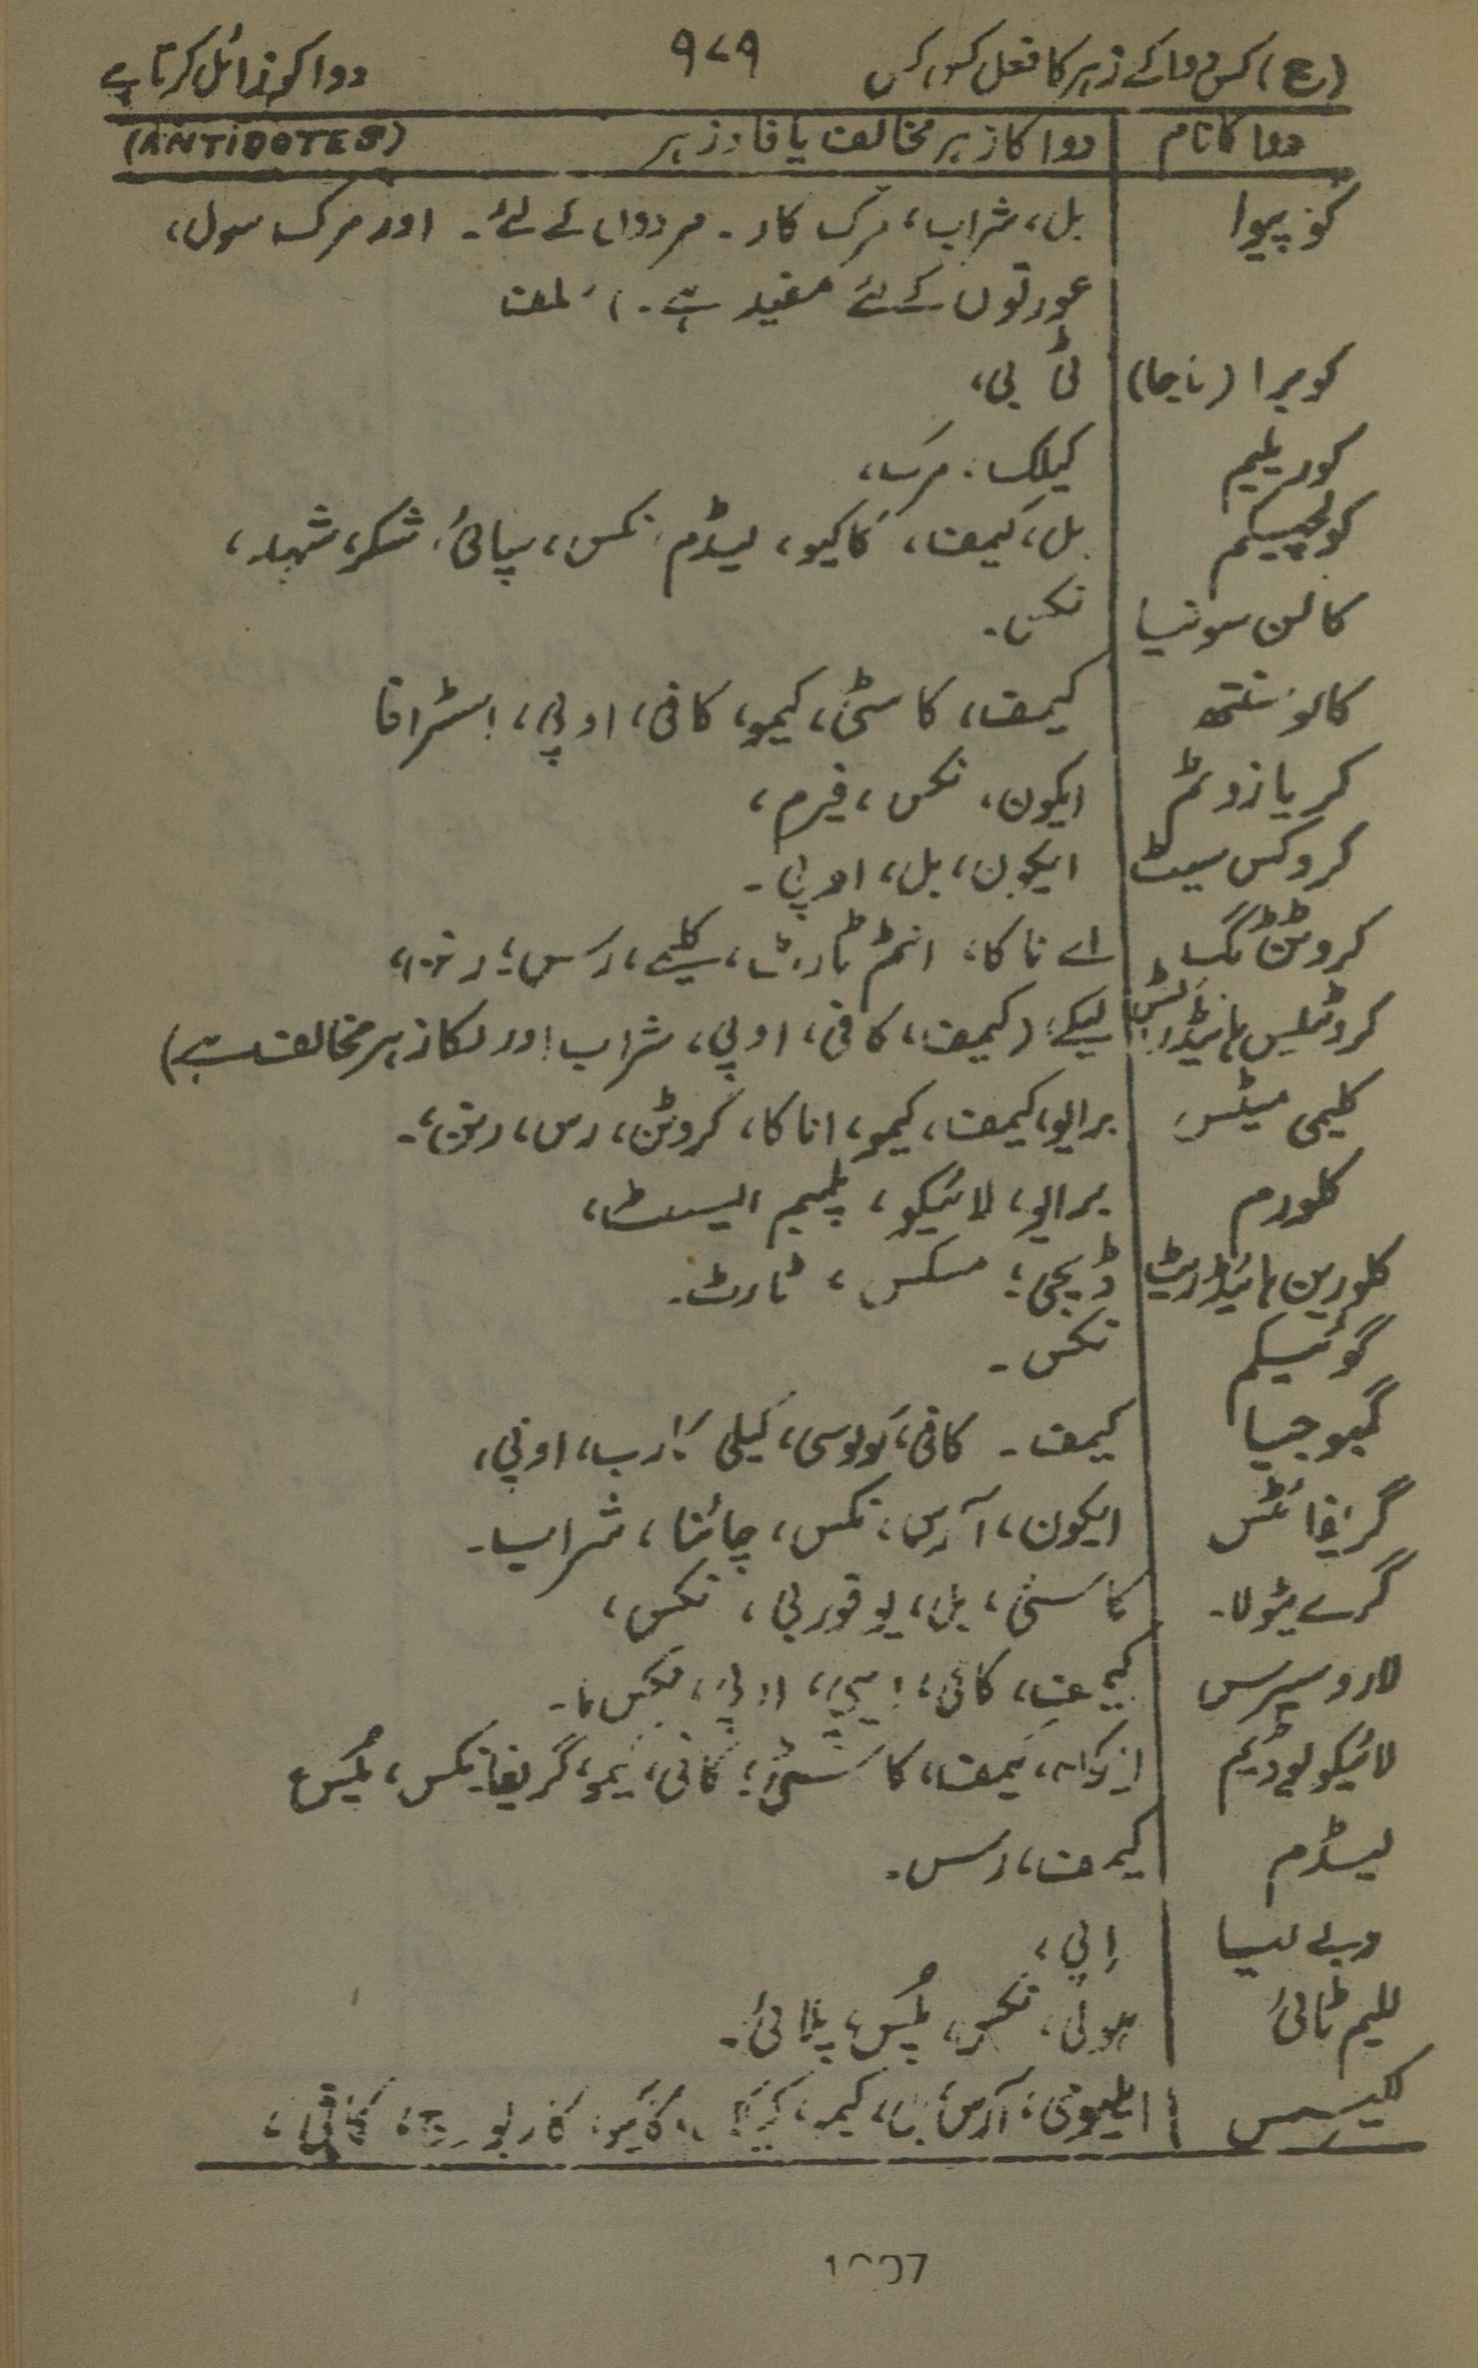 (ع) کس دوا کے زہر کا فعل کس کس ۹۷۹ دوا کو زائل کرتا ہے
دوا کا نام دوا کا زہر مخالف یا فاد زہر (ANTIDOTES)
کوپیوا بل، شراب، مرک کار۔ مردوں کے لئے۔ اور مرک سول،
عورتوں کے لئے مفید ہے۔ سلف
کوبرا (ناجا) ٹی بی،
کوریلیم کیلک، مرک،
کولچیکم بل، کیمف، کاکیو، لیڈم، نکس، سپائی، شکر، شہد،
کالن سونیا نکس۔
کالوسنتھ کیمف، کاسٹی، کیمو، کافی، اوپی، اسٹرافا
کریازوٹم ایکون، نکس، فیرم،
کروکس سیٹ ایکون، بل، اوپی۔
کروٹن ٹگ اے ناکا، انٹم ٹارٹ، کلیے، رس، رنن،
کروٹیلس ہائیڈرا لیکے (کیمف، کافی، اوپی، شراب اور لکا زہر مخالف ہے)
کلیمی میٹس برایو، کیمف، کیمو، اناکا، کروٹن، رس، رنن،۔
کلورم برایو، لائیکو، پلمبم ایسٹ،
کلورین ہائیڈریٹ ڈیجی، مسکس، ٹارٹ۔
گوئیکم نکس۔
گمبوجیا کیمف۔ کافی، کولوسی، کیلی کارب، اوپی،
گریفائٹس ایکون، آرس، نکس، چائنا، شراب۔
گرے ٹیولا۔ کاسٹی، بل، یوفوربی، نکس،
لاروسیرس کیمف، کافی، اپی، اوپی، نکس ما۔
لائیکوپوڈیم ایکون، کیمف، کاسٹی، کافی، کیمو، گریفا، نکس، پلس
لیڈم کیمف، رس۔
لیا اپی،
للیم ٹائی ہولی، نکس، پلس، پلاٹی۔
لکیسس ایلیومی، آرس، بل، کیمو، کاکیو، کاربو ویج، کافی،